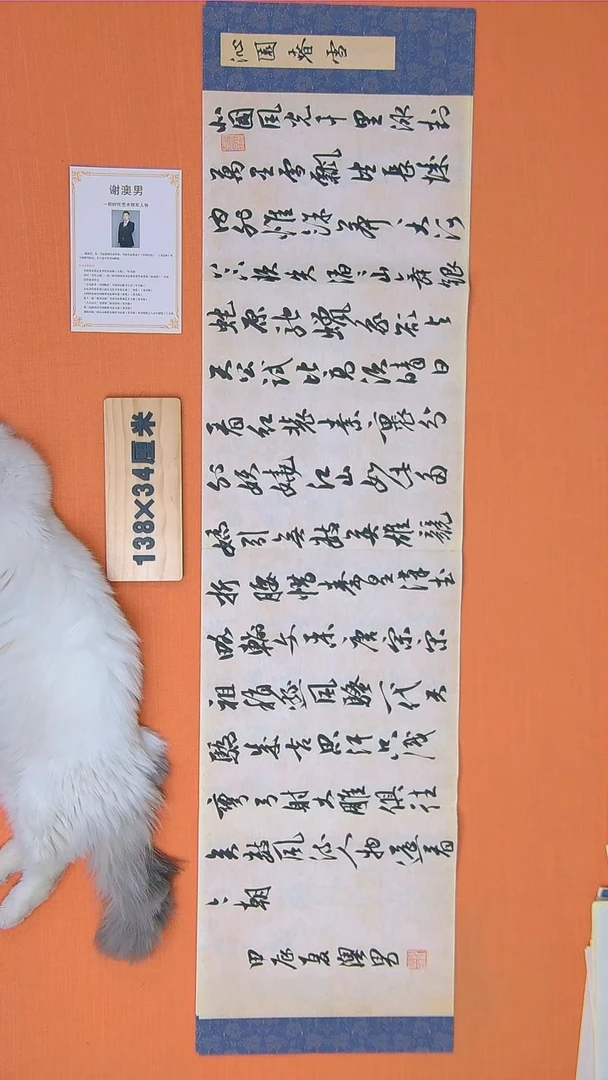 沁園春雪
北國風光千里冰封
萬里雪飄望長城
內外惟餘莽莽大河
上下頓失滔滔山舞銀
蛇原馳蠟象欲與
天公試比高須晴日
看紅裝素裹分
外妖嬈江山如此多
嬌引無數英雄競
折腰惜秦皇漢武
略輸文采唐宗宋
祖稍遜風騷一代天
驕成吉思汗只識
彎弓射大雕俱往
矣數風流人物還看
今朝
甲辰夏澳男
谢澳男
新时代艺术领军人物
138×34厘米